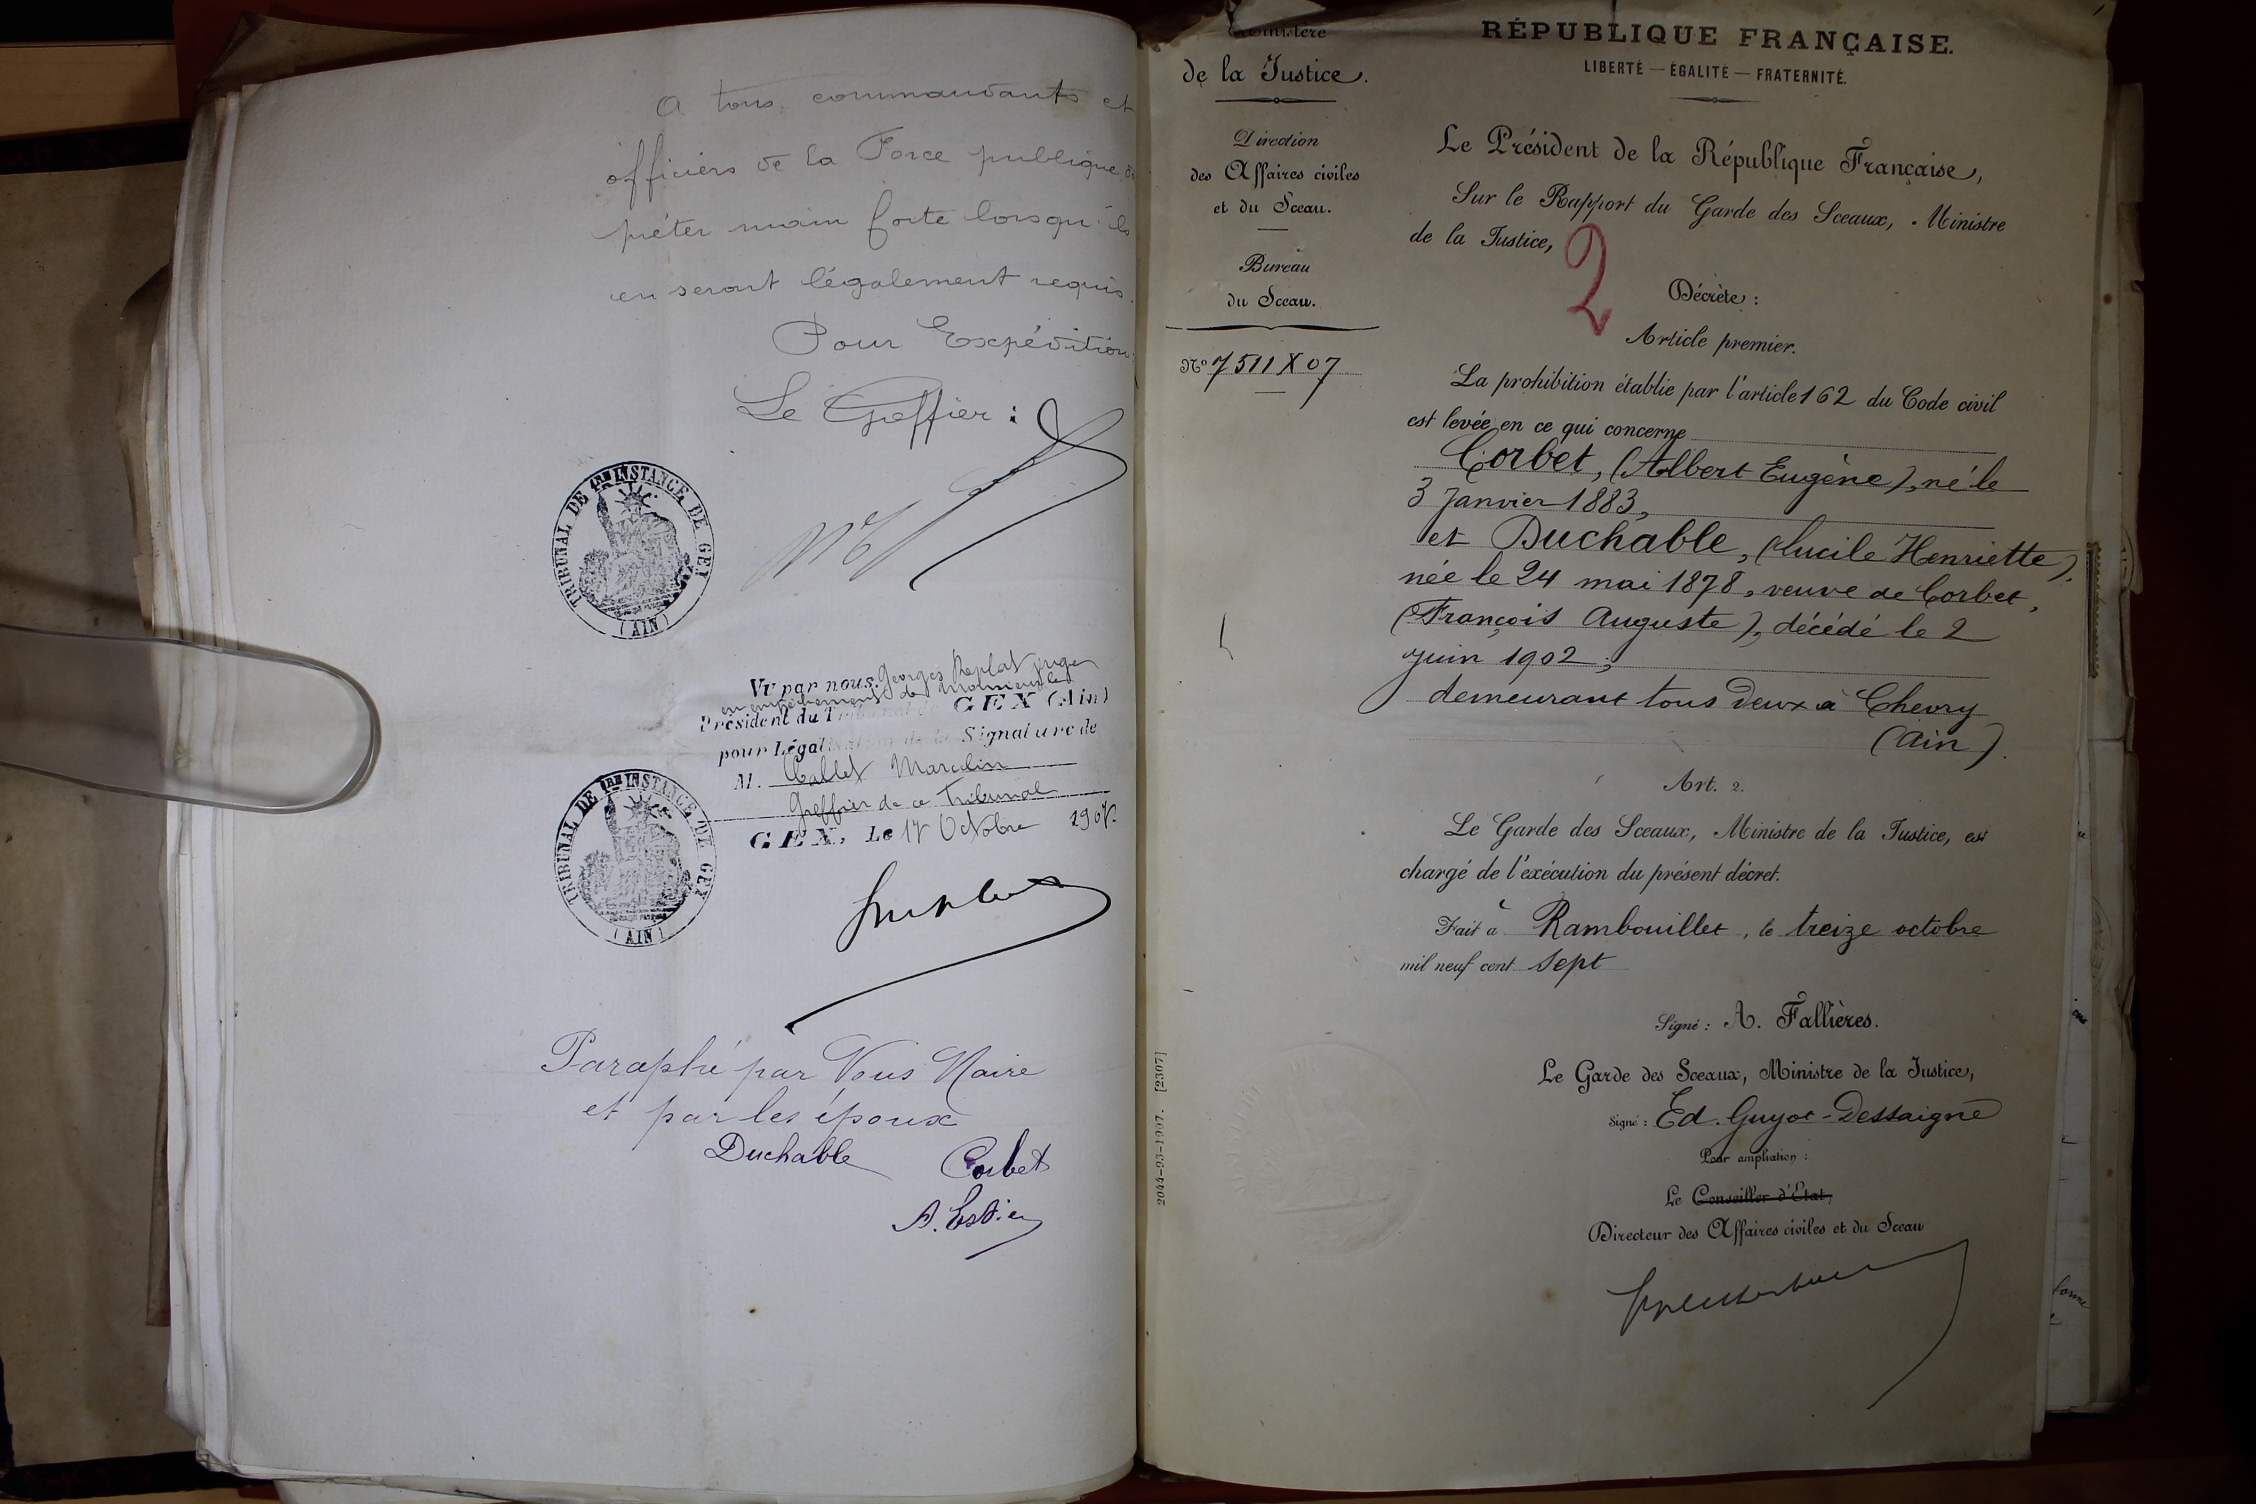 A tous commandants et
officiers de la Force publique de
prêter main forte lorsqu'ils
en seront légalement requis.
Pour Expédition:
Le Greffier:
TRIBUNAL DE 1RE INSTANCE DE GEX
(AIN)
Vu par nous, Georges Replat juge
en empêchement de Monsieur le
Président du Tribunal de GEX (Ain)
pour Légalisation de la Signature de
M. Callet Marcelin
Greffier de ce Tribunal
GEX, Le 17 Octobre 1907.
TRIBUNAL DE 1RE INSTANCE DE GEX
(AIN)
Paraphé par Nous Maire
et par les époux
Duchable Corbet
Ministère
de la Justice.
Direction
des Affaires civiles
et du Sceau.
Bureau
du Sceau.
No 7511 X 07
2044-93-1907. [2307]
RÉPUBLIQUE FRANÇAISE.
LIBERTÉ — ÉGALITÉ — FRATERNITÉ.
Le Président de la République Française,
Sur le Rapport du Garde des Sceaux, Ministre
de la Justice,
2
Décrète:
Article premier.
La prohibition établie par l'article 162 du Code civil
est levée en ce qui concerne
Corbet, (Albert Eugène), né le
3 Janvier 1883,
et Duchable, (Lucile Henriette),
née le 24 mai 1878, veuve de Corbet,
(François Auguste), décédé le 2
juin 1902;
demeurant tous deux à Chevry
(Ain).
Art. 2.
Le Garde des Sceaux, Ministre de la Justice, est
chargé de l'exécution du présent décret.
Fait à Rambouillet, le treize octobre
mil neuf cent sept
Signé: A. Fallières.
Le Garde des Sceaux, Ministre de la Justice,
Signé: Ed. Guyot-Dessaigne
Pour ampliation:
Le Conseiller d'État,
Directeur des Affaires civiles et du Sceau